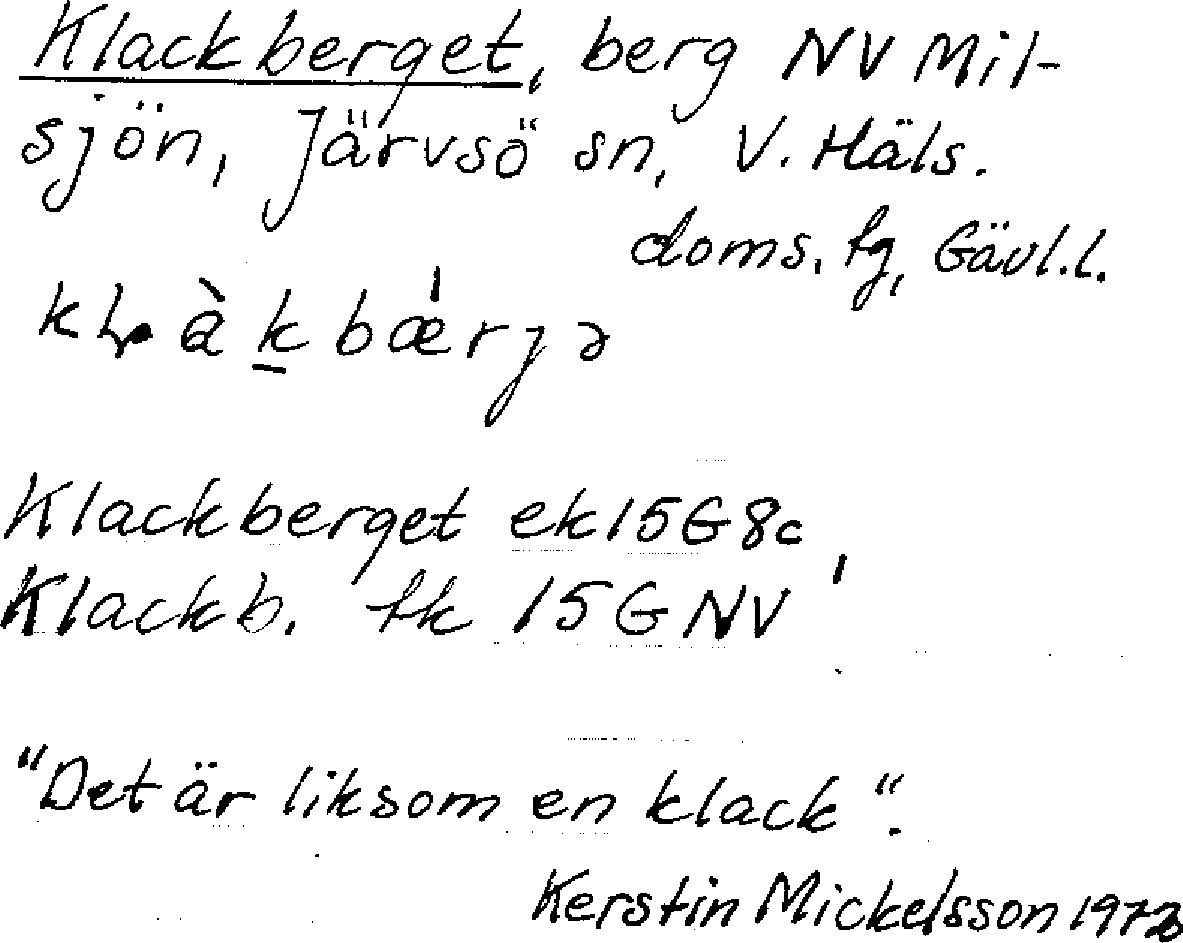 Klackberget, berg NV Mil-
sjön, Järvsö sn, V. Häls.
doms. tg, Gävl.l.
Klackberget ek 15G 8c,
Klackb. tk 15G NV
"Det är liksom en klack".
Kerstin Mickelsson